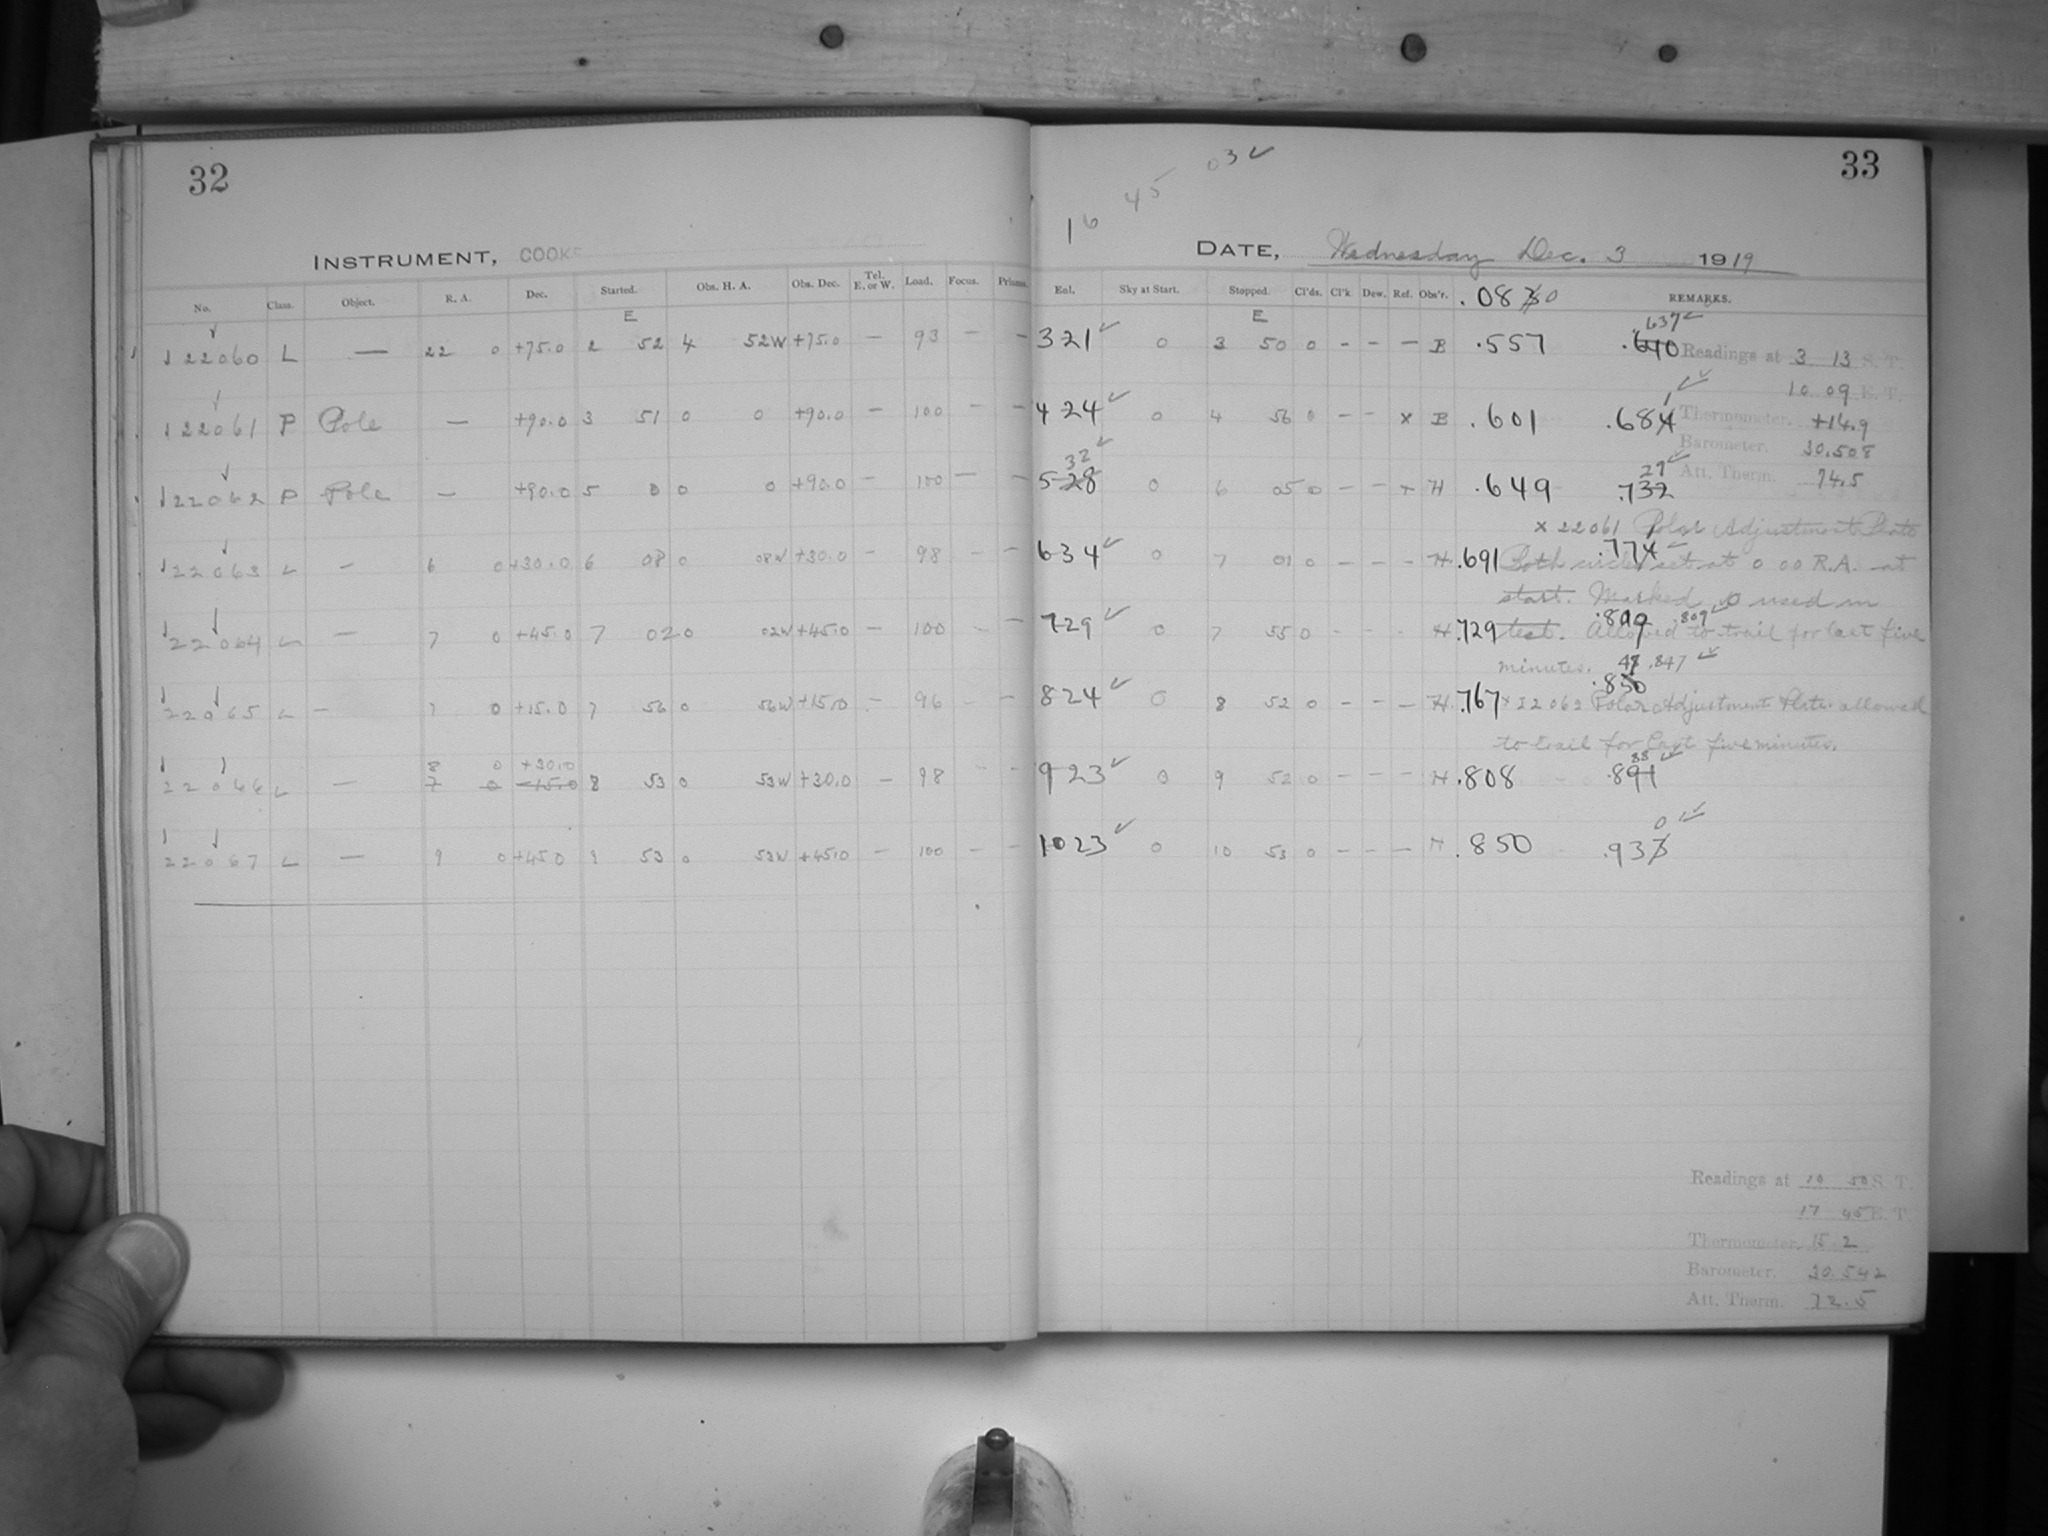 32
33
16 45 03 ✓
INSTRUMENT, COOKE
DATE, Wednesday Dec. 3 1919
No. Class. Object. R. A. Dec. Started. Obs. H. A. Obs. Dec. Tel. E. or W. Load. Focus. Prisms. Enl. Sky at Start. Stopped. Cl'ds. Cl'k. Dew. Ref. Obs'r. .0830 REMARKS.
E E
22060 L — 22 0 +75.0 2 52 4 52W +75.0 — 93 — — 321 ✓ 0 3 50 0 - - — B .557 .640 637 ✓ Readings at 3 13 S. T.
10 09 E. T.
22061 P Pole — +90.0 3 51 0 0 +90.0 — 100 — — 424 ✓ 0 4 56 0 - - x B .601 .684 1 ✓ Thermometer. +14.9
Barometer. 30.508
22062 P Pole — +90.0 5 0 0 0 +90.0 — 100 — — 528 32 ✓ 0 6 05 0 - - x H .649 .732 29 ✓ Att. Therm. 74.5
x 22061 Polar Adjustment Plate
22063 L — 6 0 +30.0 6 08 0 08W +30.0 — 98 — — 634 ✓ 0 7 01 0 - - - H .691 .774 ✓ Both circles set at 0 00 R.A. at
start. Marked 0 used in
22064 L — 7 0 +45.0 7 02 0 02W +45.0 — 100 — — 729 ✓ 0 7 55 0 - - - H .729 .809 ✓ test. Allowed to trail for last five
minutes. .847 ✓
22065 L — 7 0 +15.0 7 56 0 56W +15.0 — 96 — — 824 ✓ 0 8 52 0 - - — H .767 .850 x 22062 Polar Adjustment Plate allowed
to trail for last five minutes.
8 0 +30.0
22066 L — 7 0 -15.0 8 53 0 53W +30.0 — 98 - - 923 ✓ 0 9 52 0 - - — H .808 .891 88 ✓
22067 L — 9 0 +45.0 9 53 0 53W +45.0 — 100 — — 1023 ✓ 0 10 53 0 - - — H .850 .933 0 ✓
Readings at 10 50 S. T.
17 45 E. T.
Thermometer. 15.2
Barometer. 30.542
Att. Therm. 72.5